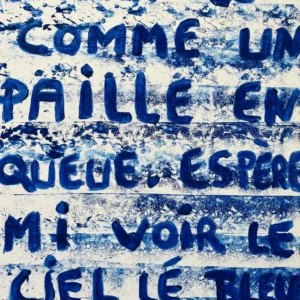 COMME UN
PAILLE EN
QUEUE. ESPÈRE
Mi VOIR LE
CIEL LÉ BLEU